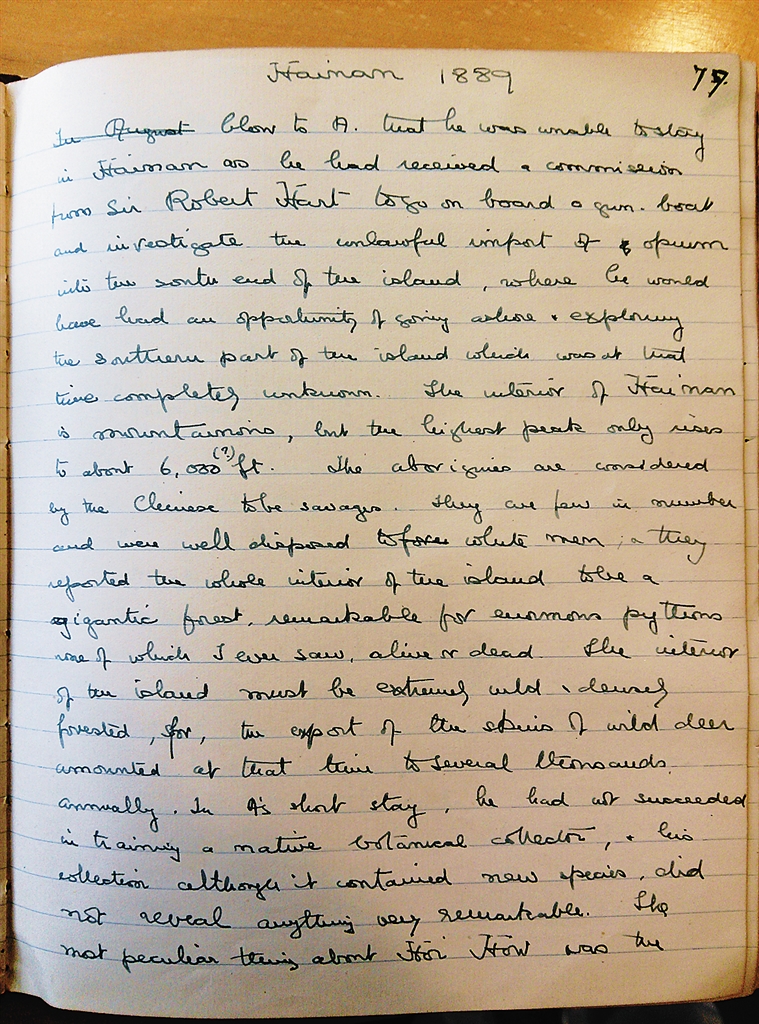 Hainan 1889
77.
In August blow to A. that he was unable to stay
in Hainan as he had received a commission
from Sir Robert Hart to go on board a gun-boat
and investigate the unlawful import of opium
into the south end of the island, where he would
have had an opportunity of going ashore & exploring
the southern part of the island which was at that
time completely unknown. The interior of Hainan
is mountainous, but the highest peak only rises
to about 6,000 (?) ft. The aborigines are considered
by the Chinese to be savages. They are few in number
and were well disposed to white men, & they
reported the whole interior of the island to be a
gigantic forest, remarkable for enormous pythons
none of which I ever saw, alive or dead. The interior
of the island must be extremely wild & densely
forested, for, the export of the skins of wild deer
amounted at that time to several thousands
annually. In A's short stay, he had not succeeded
in training a native botanical collector, & his
collection although it contained new species, did
not reveal anything very remarkable. The
most peculiar thing about Hoi How was the